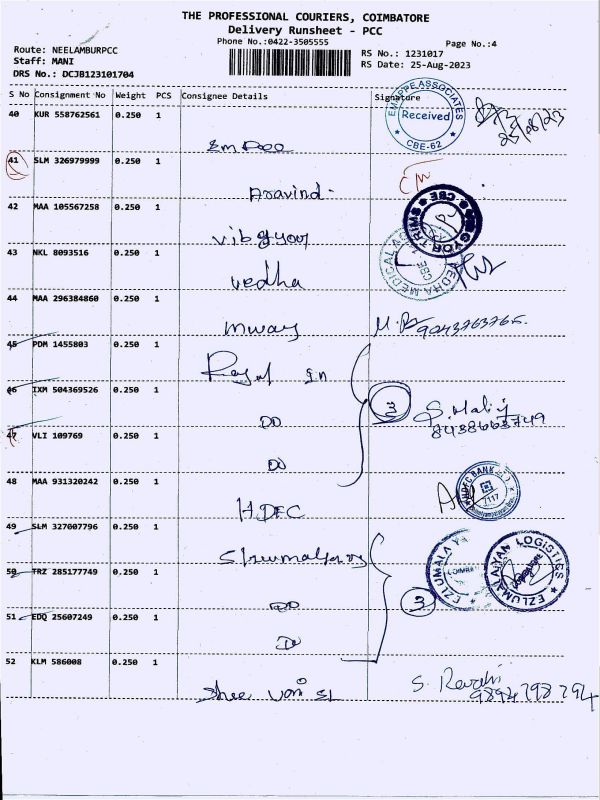 THE PROFESSIONAL COURIERS, COIMBATORE
Delivery Runsheet - PCC
Phone No.:0422-3505555
Page No.:4
Route: NEELAMBURPCC
RS No.: 1231017
Staff: MANI
RS Date: 25-Aug-2023
DRS No.: DCJB123101704
S No Consignment No Weight PCS Consignee Details Signature
40 KUR 558762561 0.250 1
Received
CBE-62
25/08/23
41 SLM 326979999 0.250 1
Aravind
42 MAA 105567258 0.250 1
vibgyor
43 NKL 8093516 0.250 1
vedha
44 MAA 296384860 0.250 1
mway
45 PDM 1455803 0.250 1
46 IXM 504369526 0.250 1
DO
3
47 VLI 109769 0.250 1
DO
48 MAA 931320242 0.250 1
HDFC
HDFC BANK
49 SLM 327007796 0.250 1
EZLUMALAIYAN LOGISTICS
50 TRZ 285177749 0.250 1
DO
3
51 EDQ 25607249 0.250 1
DO
52 KLM 586008 0.250 1
Shee vari
S. Revathi
9894798794